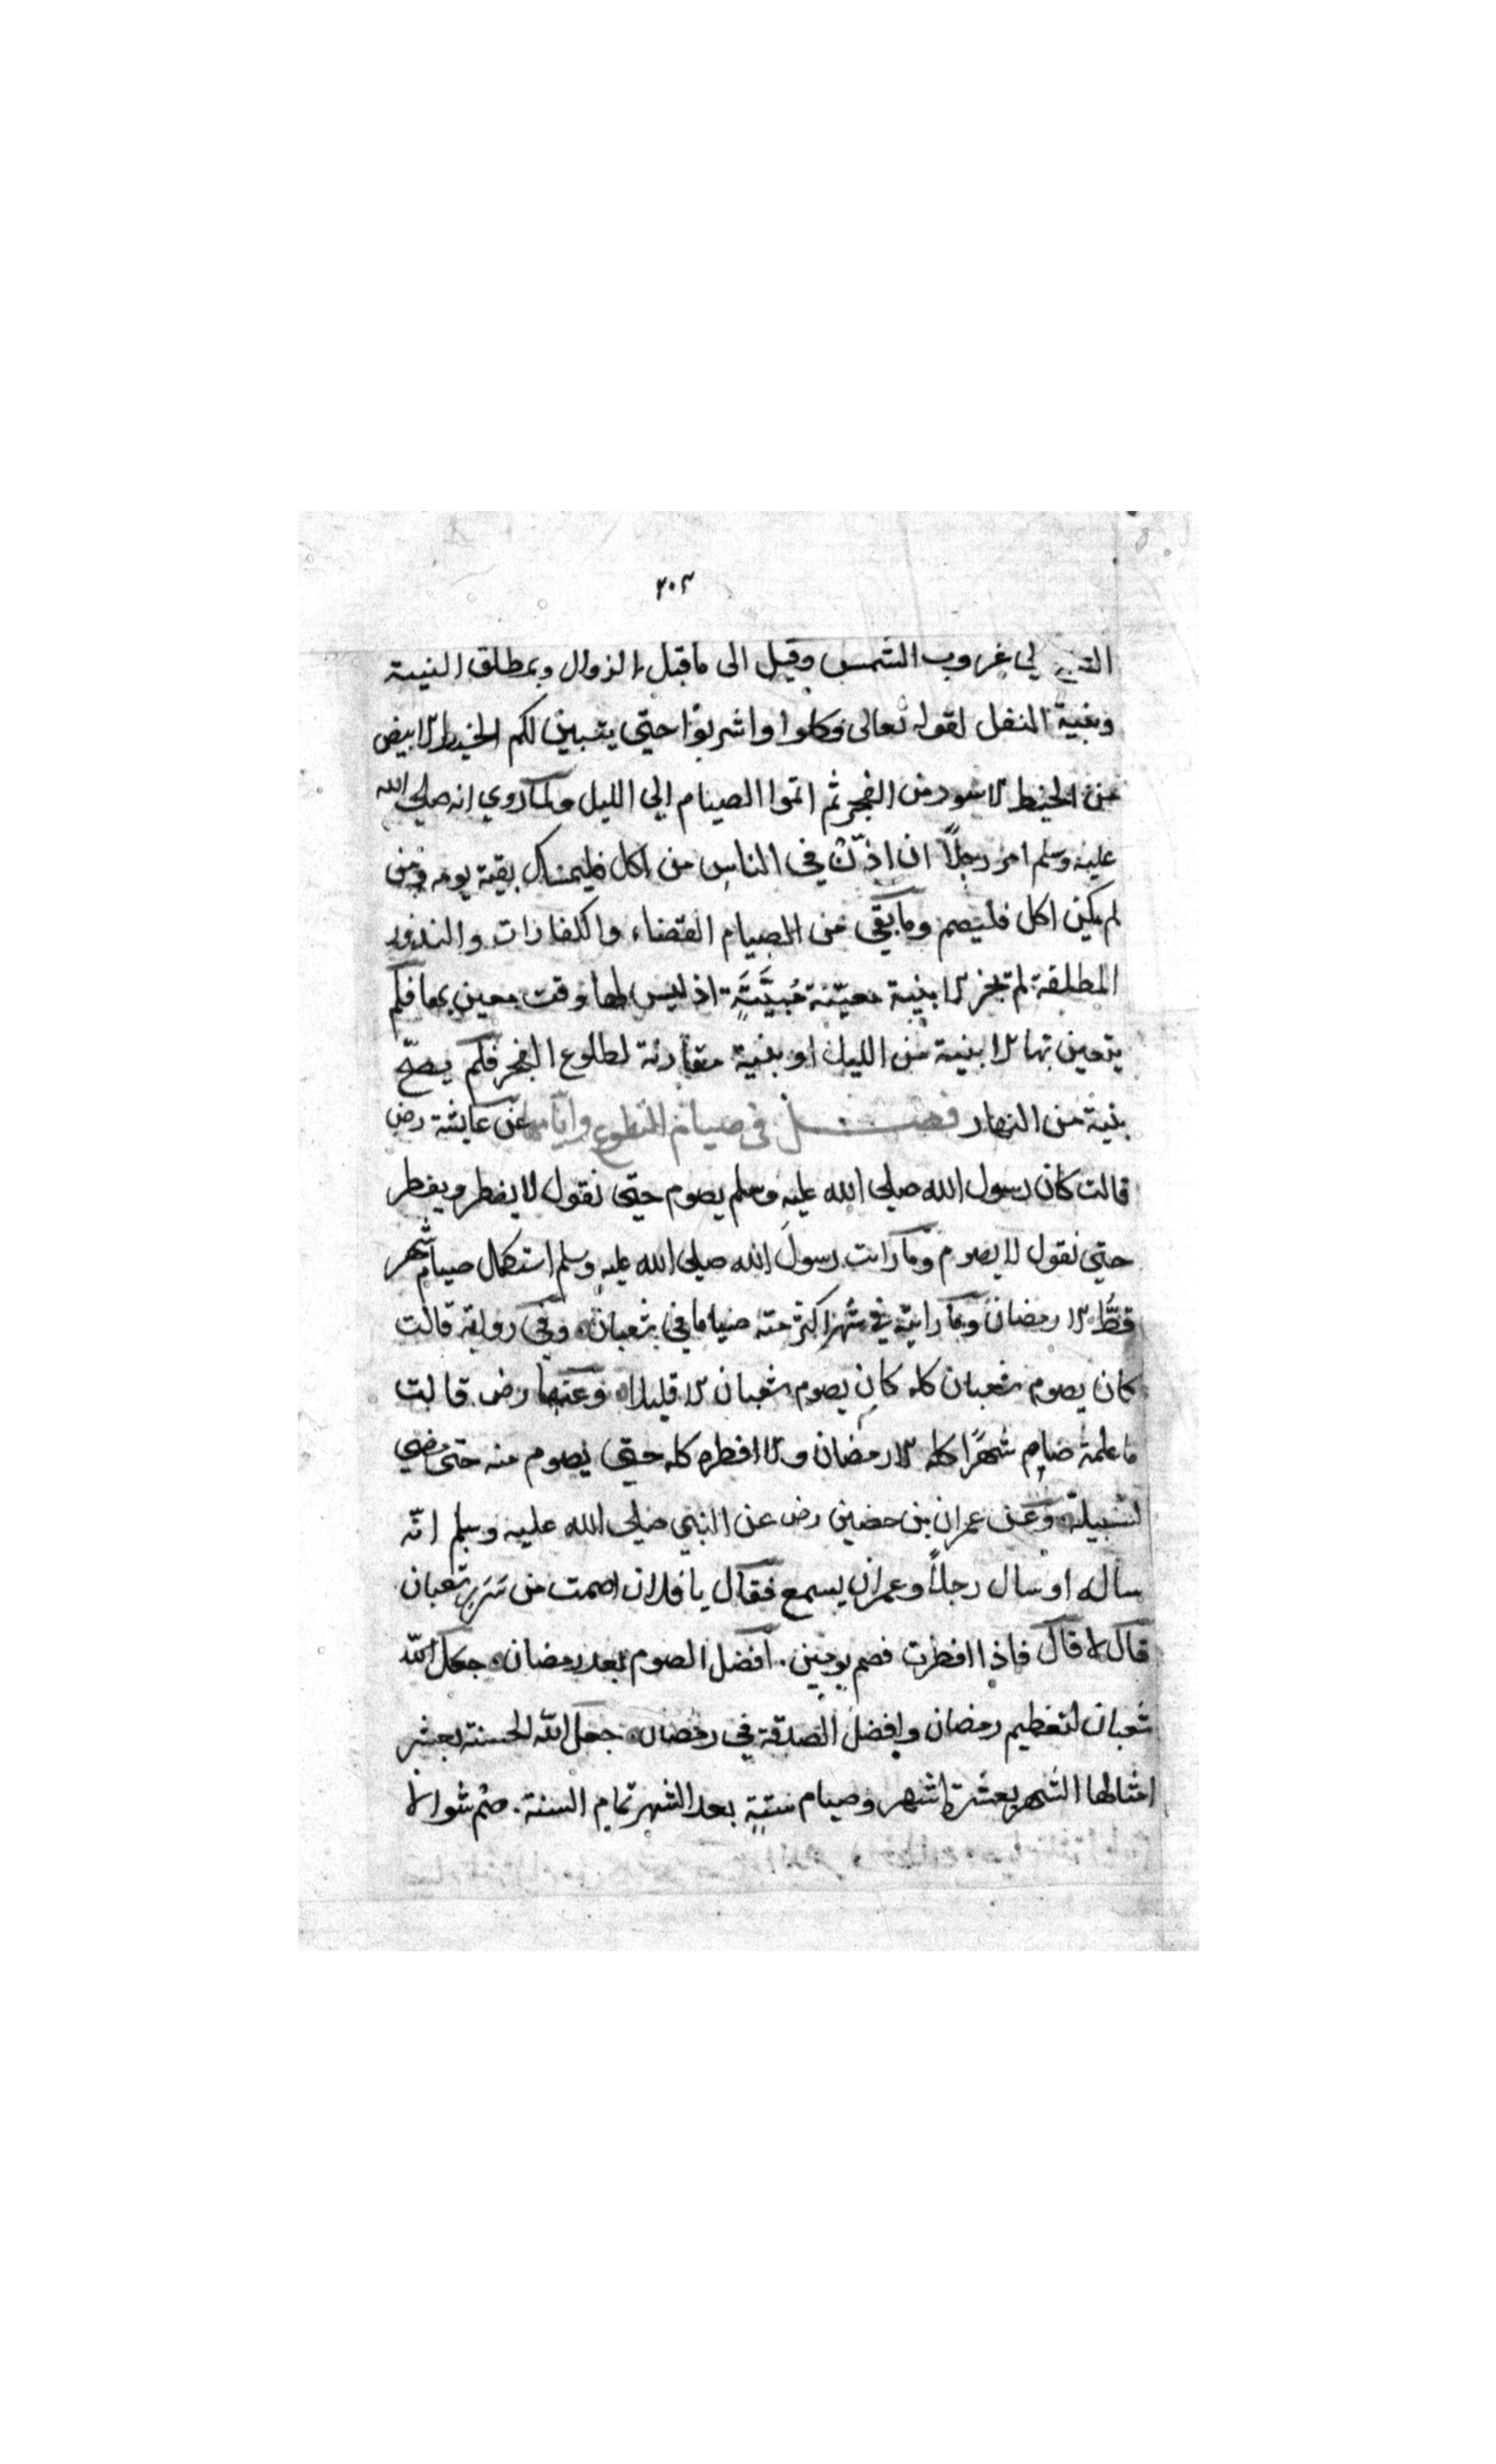 ٢٠٢
الى غروب الشمس وقيل الى ما قبل الزوال وبمطلق النية
وبنية النفل لقوله تعالى وكلوا واشربوا حتى يتبين لكم الخيط الابيض
من الخيط الاسود من الفجر ثم اتموا الصيام الي الليل ولما روي انه صلى الله
عليه وسلم امر رجلاً ان اذّن في الناس من اكل فليمسك بقية يومه ومن
لم يكن اكل فليصم وما بقي من الصيام القضاء والكفارات والنذور
المطلقة لم تجز الا بنية معيّنة مُبيَّتَةٍ اذ ليس لها وقت معين بها فلم
يتعين بها الا بنية من الليل او بنية مقارنة لطلوع الفجر فلم يصحّ
بنية من النهار فصل في صيام التطوع وايامها عن عايشة رض
قالت كان رسول الله صلى الله عليه وسلم يصوم حتى نقول لا يفطر ويفطر
حتى نقول لا يصوم وما رايت رسولَ الله صلى الله عليه وسلم استكمل صيام شهر
قطُّ الا رمضان وما رايته في شهر اكثر منه صياما في شعبان وفي رواية قالت
كان يصوم شعبان كله كان يصوم شعبان الا قليلا وعنها رض قالت
ما علمته صام شهرًا كله الا رمضان ولا افطره كله حتى يصوم منه حتى مضي
لسبيله وعن عمران بن حصين رض عن النبي صلى الله عليه وسلم انّه
ساله او سال رجلاً وعمران يسمع فقال يا فلان اصمت من سَرَرِ شعبان
قال لا قال فاذا افطرت فصم يومين. افضل الصوم بعد رمضان جعل الله
شعبان لتعظيم رمضان وافضل الصدقة في رمضان جعل الله الحسنة بعشر
امثالها الشهر بعشرة اشهر وصيام ستةٍ بعد الشهر تمام السنة. صُم شوالا